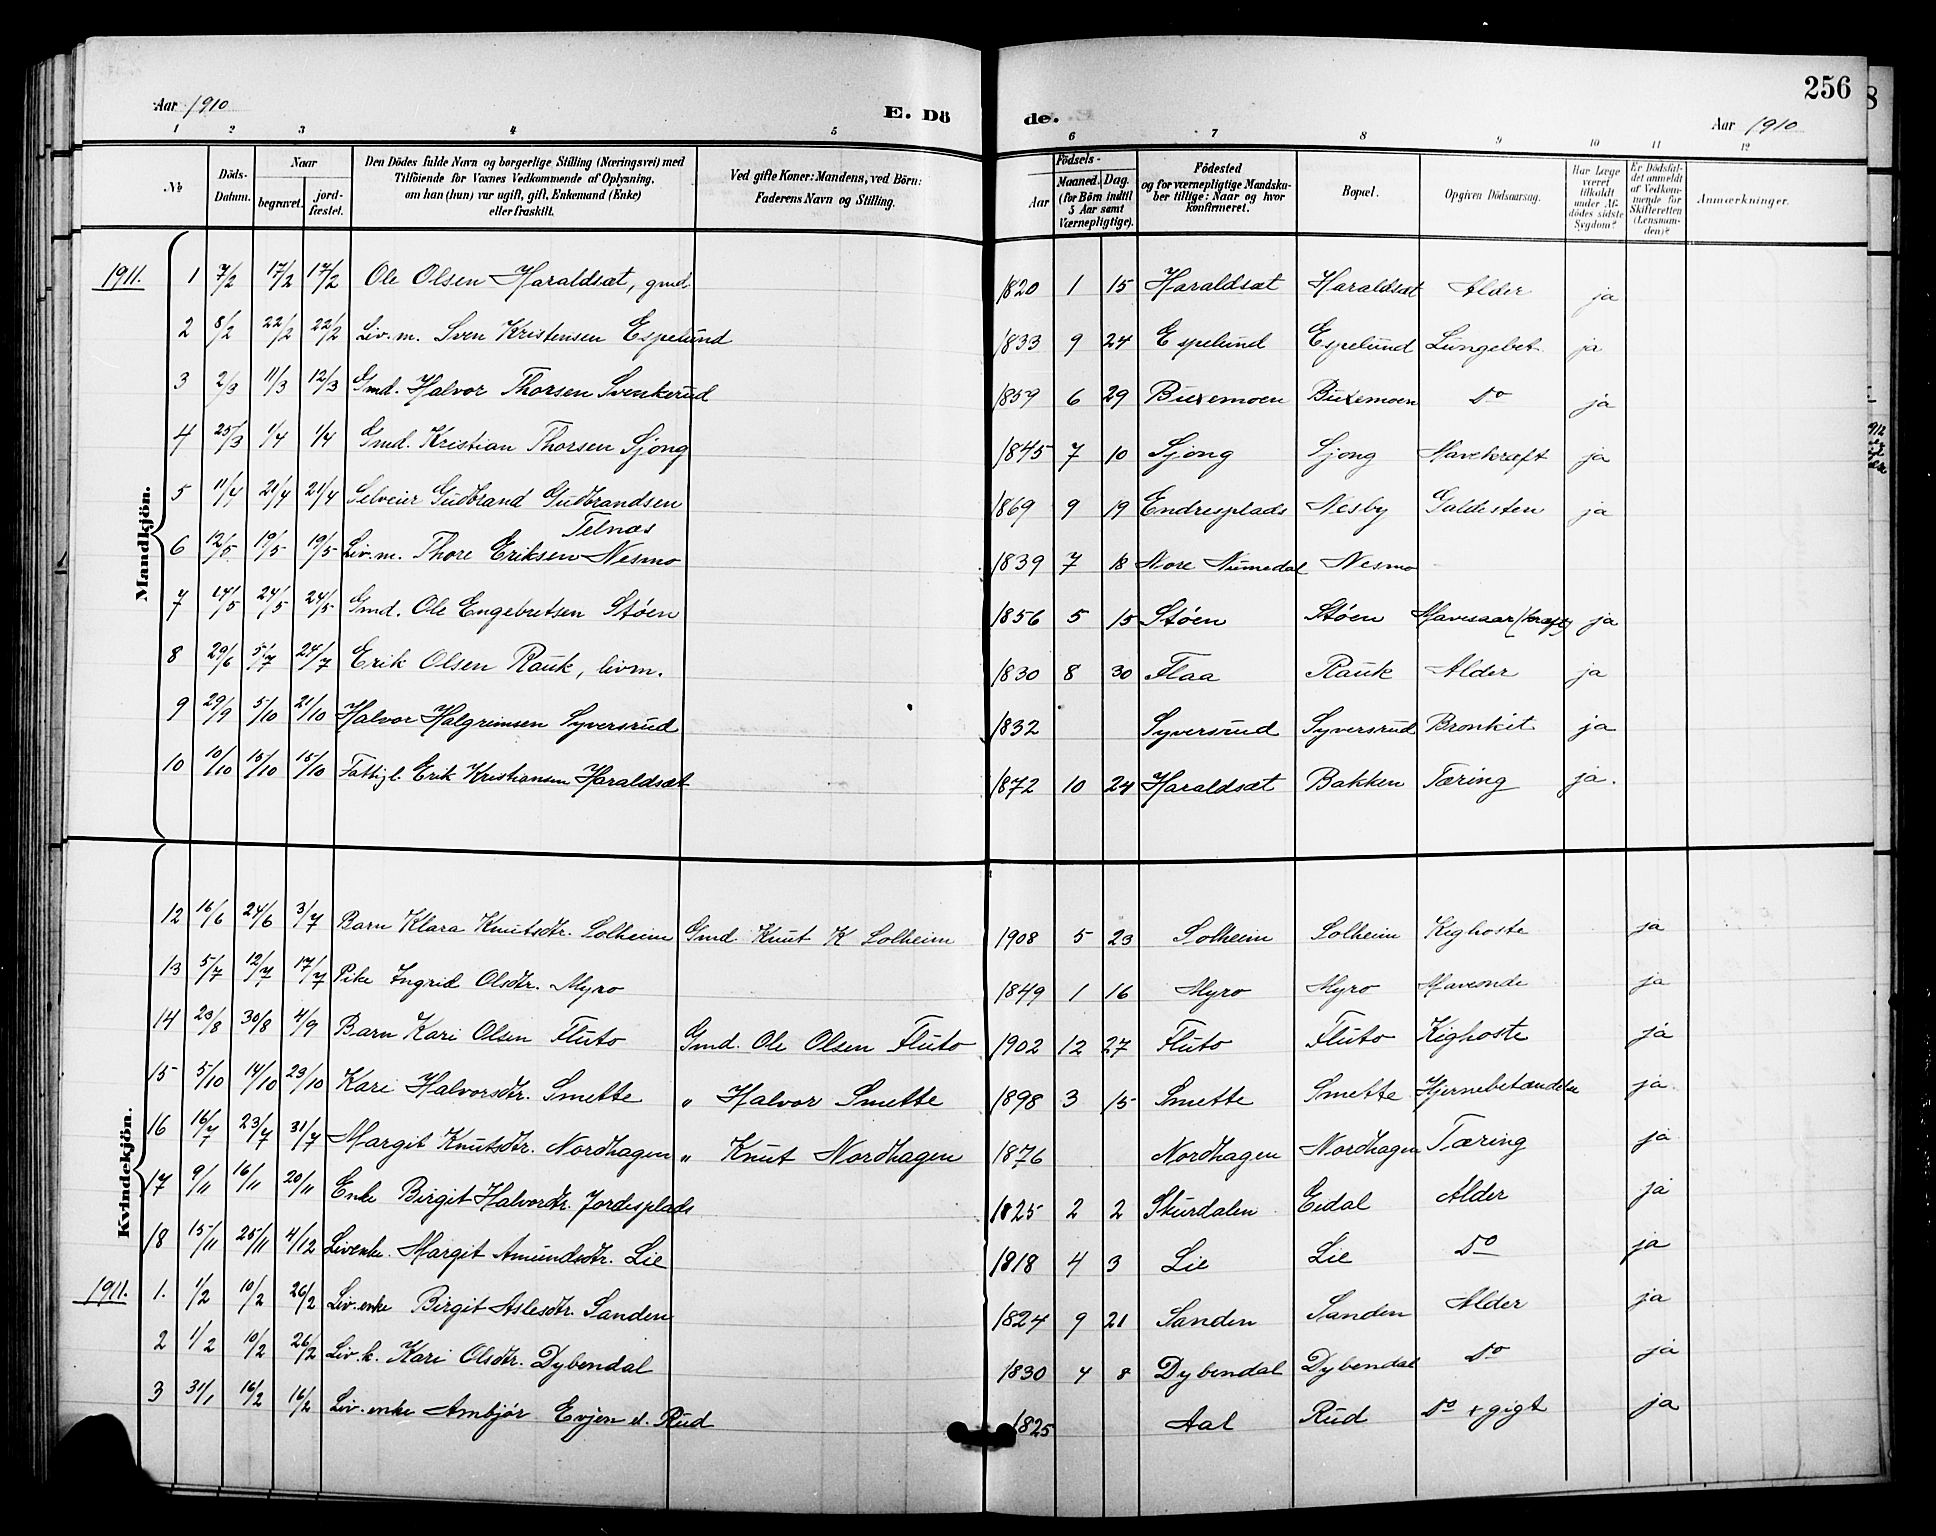 256
Aar 1910
E. Dö
de.
Aar 1910
1 2 3 4 5 6 7 8 9 10 11 12
No
Döds-Datum.
Naar
begravet.
jord-fæstet.
Den Dödes fulde Navn og borgerlige Stilling (Næringsvei) med
Tilföiende for Voxnes Vedkommende af Oplysning,
om han (hun) var ugift, gift, Enkemand (Enke)
eller fraskilt.
Ved gifte Koner: Mandens, ved Börn:
Faderens Navn og Stilling.
Födsels-
Aar
Maaned. Dag.
(for Börn indtil
5 Aar samt
Værnepligtige).
Födested
og for værnepligtige Mandska-
ber tillige: Naar og hvor
konfirmeret.
Bopæl.
Opgiven Dödsaarsag.
Har Læge
været
tilkaldt
under Af-
dödes sidste
Sygdom?
Er Dödsfal-
det anmeldt
af Vedkom-
mende for
Skifteretten
(Lensman-
den)?
Anmærkninger.
Mandkjön.
1911. 1 7/2 17/2 17/2 Ole Olsen Haraldsæt, gmd. 1820 1 15 Haraldsæt Haraldsæt Alder ja
2 8/2 22/2 22/2 Liv.m. Sven Kristensen Espelund 1833 9 24 Espelund Espelund Lungebet. ja
3 2/3 11/3 12/3 Gmd. Halvor Thorsen Svenkerud 1859 6 29 Buxemoen Buxemoen Do ja
4 25/3 1/4 1/4 Gmd. Kristian Thorsen Sjong 1845 7 10 Sjong Sjong Mavekræft ja
5 11/4 21/4 21/4 Selveier Gudbrand Gudbrandsen 1869 9 19 Endresplads Nesby Galdesten ja
Telnæs
6 12/5 19/5 19/5 Liv.m. Thore Eriksen Nesmo 1839 7 18 Nore Numedal Nesmo
7 14/5 24/5 24/5 Gmd. Ole Engebretsen Støen 1856 5 15 Støen Støen Mavesaar (kræft) ja
8 29/6 5/7 24/7 Erik Olsen Rauk, livm. 1830 8 30 Flaa Rauk Alder ja
9 29/9 5/10 21/10 Halvor Halgrimsen Syversrud 1832 Syversrud Syversrud Bronkit ja
10 10/10 15/10 15/10 Fattigl. Erik Kristiansen Haraldsæt 1872 10 24 Haraldsæt Bakken Tæring ja.
Kvindekjön.
12 16/6 24/6 3/7 Barn Klara Knutsdtr. Solheim Gmd. Knut K Solheim 1908 5 23 Solheim Solheim Kighoste ja
13 5/7 12/7 17/7 Pike Ingrid Olsdtr. Myro 1849 1 16 Myro Myro Maveonde ja
14 23/8 30/8 4/9 Barn Kari Olsen Fluto Gmd. Ole Olsen Fluto 1902 12 27 Fluto Fluto Kighoste ja
15 5/10 14/10 23/10 Kari Halvorsdtr. Smette " Halvor Smette 1898 3 15 Smette Smette Hjernebetændelse ja
16 16/7 23/7 31/7 Margit Knutsdtr. Nordhagen " Knut Nordhagen 1876 Nordhagen Nordhagen Tæring ja
17 9/11 16/11 20/11 Enke Birgit Halvordtr. Jordesplads 1825 2 2 Skurdalen Eidal Alder ja
18 15/11 25/11 4/12 Livenke. Margit Amundsdtr. Lie 1818 4 3 Lie Lie Do ja
1911. 1. 1/2 10/2 26/2 Liv.enke Birgit Aslesdtr. Sanden 1824 9 21 Sanden Sanden Alder ja
2 1/2 10/2 26/2 Liv.k. Kari Olsdtr. Dybendal 1830 4 8 Dybendal Dybendal Do ja
3 31/1 16/2 16/2 Liv.enke Ambjør Evjen el. Rud 1825 Aal Rud Do + gigt ja